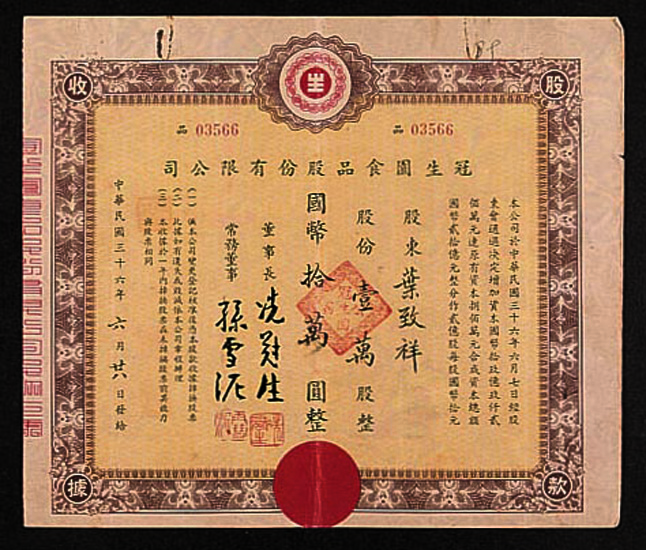 生
股款收據
品 03566
品 03566
冠生園食品股份有限公司
本公司於中華民國三十六年六月七日經股
東會通過決定增加資本國幣拾玖億玖仟貳
佰萬元連原有資本捌佰萬元合成資本總額
國幣貳拾億元整分作貳億股每股國幣拾元
股東葉致祥
股份壹萬股整
國幣拾萬圓整
董事長 冼冠生
常務董事 孫雪泥
(一)俟本公司變更登記核准後憑本股款收據掉換股票
(二)此據如有遺失或毀滅依本公司章程辦理
(三)本收據於一年內掉換股票在未掉換股票前其效力
與股票相同
中華民國三十六年六月廿八日發給